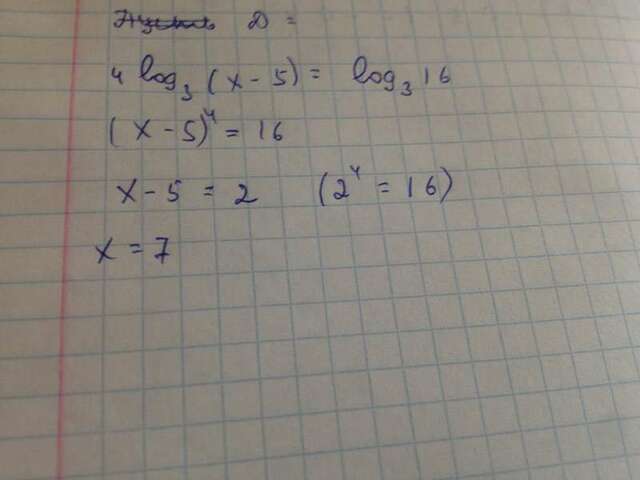 D =
4 log₃ (x - 5) = log₃ 16
(x - 5)⁴ = 16
x - 5 = 2 (2⁴ = 16)
x = 7